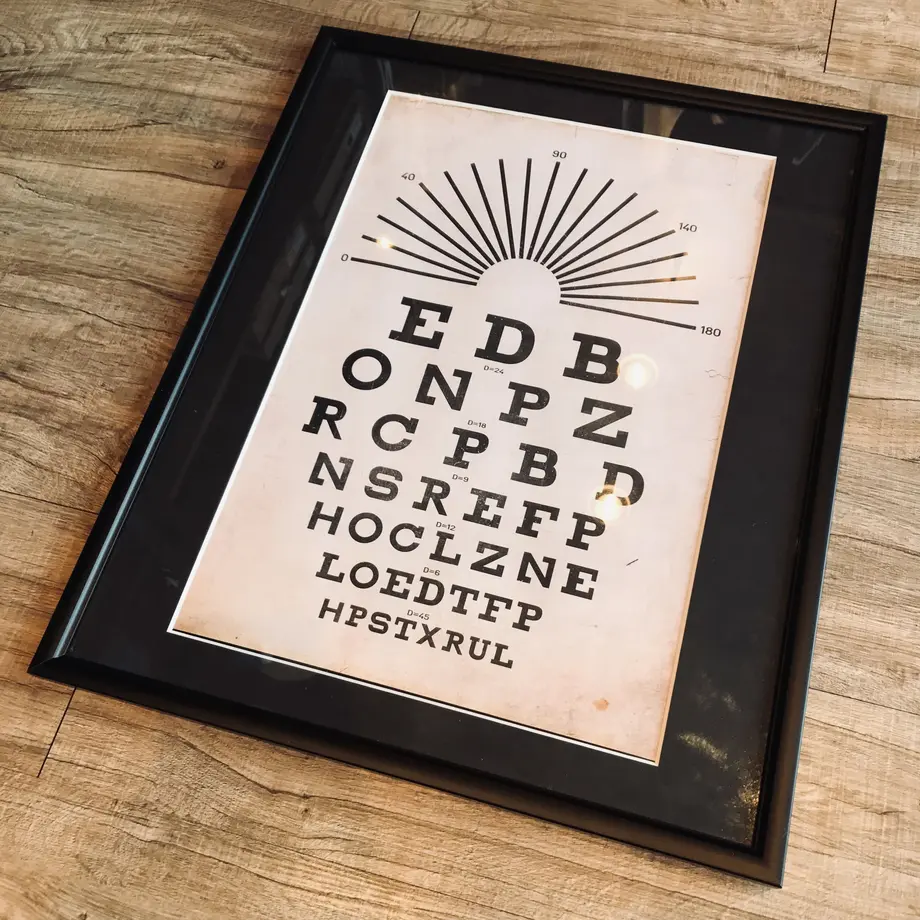 90
40
140
0
180
E D B
D=24
O N P Z
D=18
R C P B D
D=9
N S R E F P
D=12
H O C L Z N E
D=6
L O E D T F P
D=45
H P S T X R U L